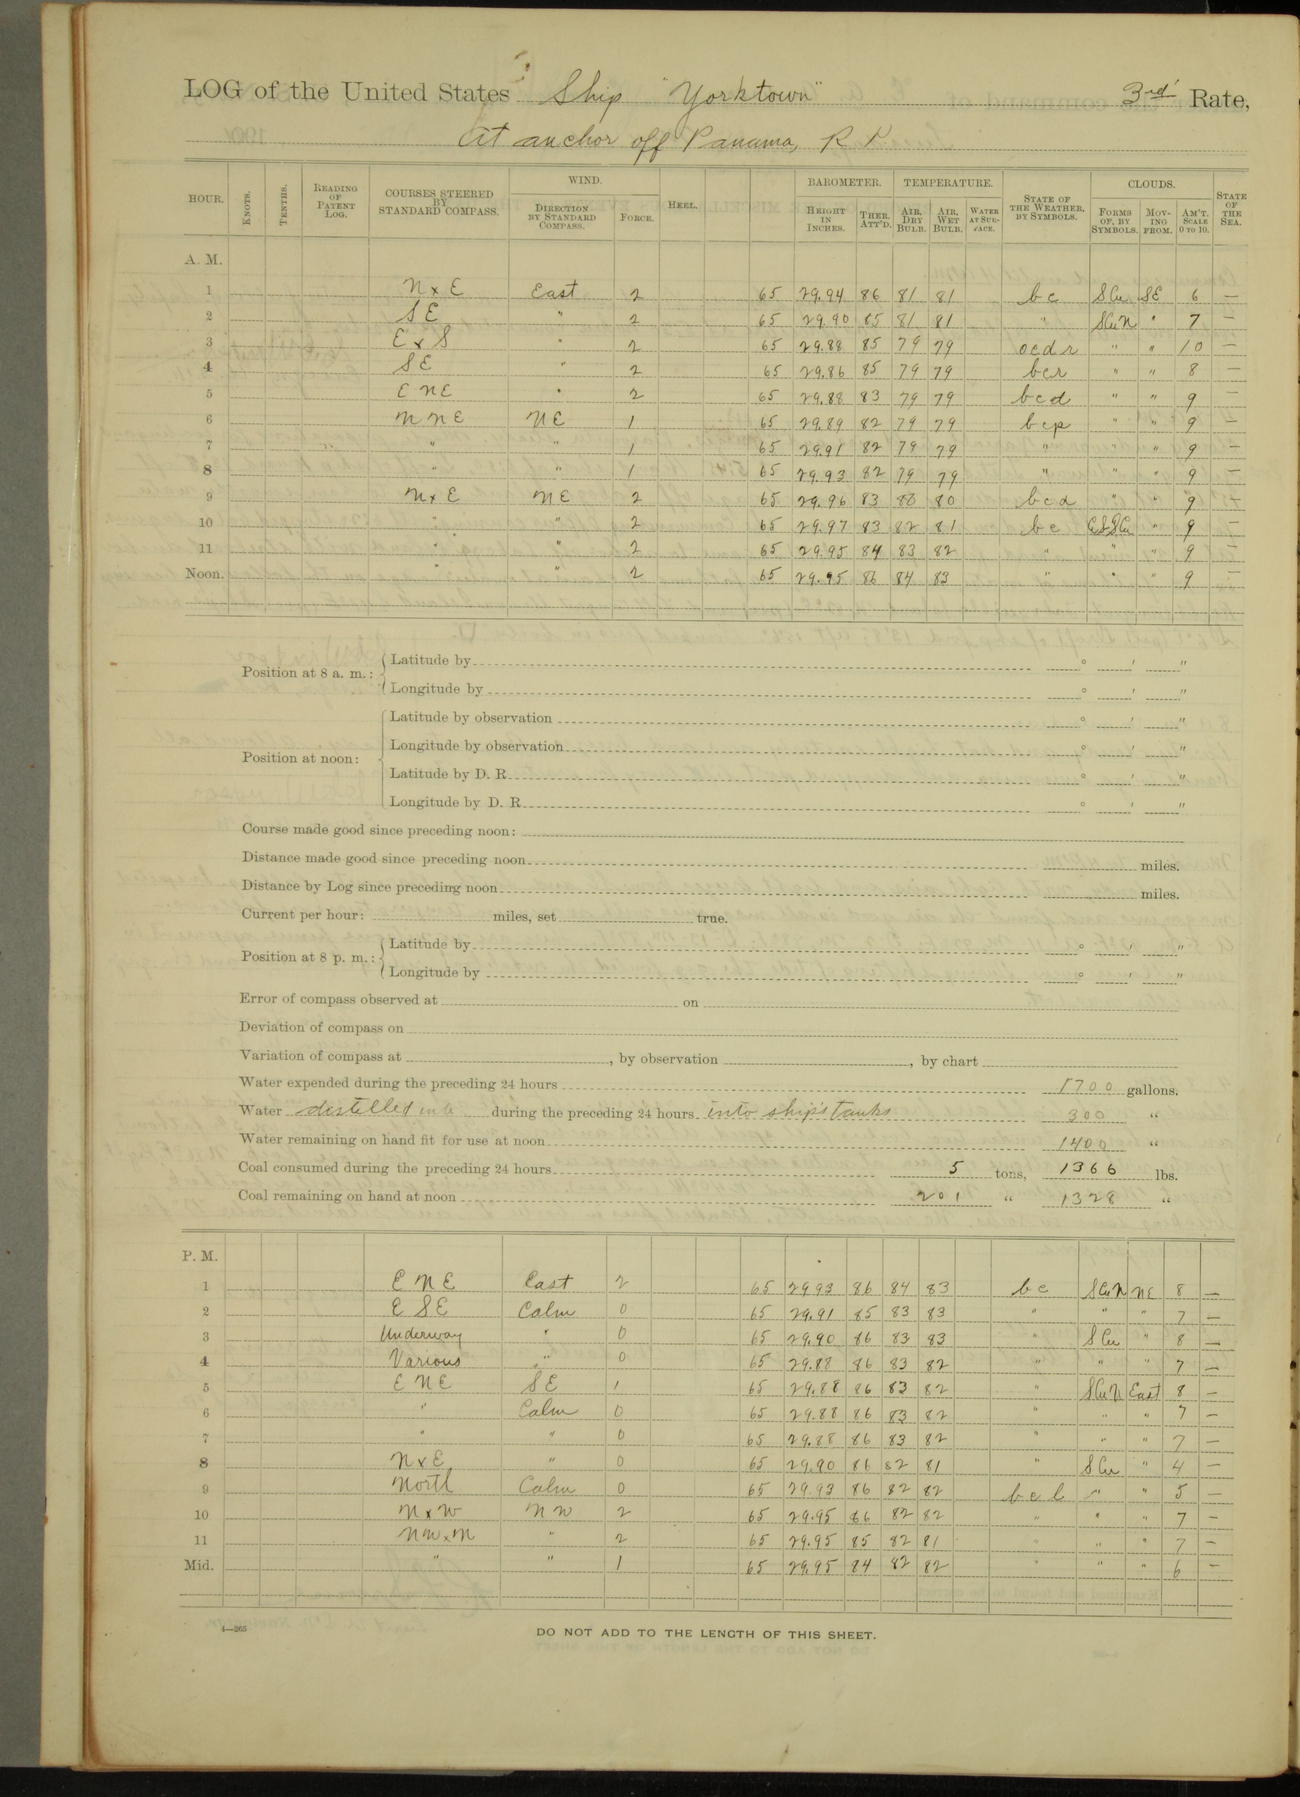 LOG of the United States Ship "Yorktown" 3rd Rate,
At anchor off Panama, R P
HOUR. KNOTS. TENTHS. READING OF PATENT LOG. COURSES STEERED BY STANDARD COMPASS. WIND. DIRECTION BY STANDARD COMPASS. FORCE. HEEL. BAROMETER. HEIGHT IN INCHES. THER. ATT'D. TEMPERATURE. AIR, DRY BULB. AIR, WET BULB. WATER AT SURFACE. STATE OF THE WEATHER, BY SYMBOLS. CLOUDS. FORMS OF, BY SYMBOLS. MOVING FROM. AM'T. SCALE 0 TO 10. STATE OF THE SEA.
A. M.
1 N x E East 2 65 29.94 86 81 81 b c S Cu SE 6 —
2 S E " 2 65 29.90 85 81 81 " S Cu N " 7 —
3 E x S " 2 65 29.88 85 79 79 o c d r " " 10 —
4 S E " 2 65 29.86 85 79 79 b c r " " 8 —
5 E N E " 2 65 29.88 83 79 79 b c d " " 9 —
6 N N E N E 1 65 29.89 82 79 79 b c p " " 9 —
7 " " 1 65 29.91 82 79 79 " " " 9 —
8 " " 1 65 29.93 82 79 79 " " " 9 —
9 N x E N E 2 65 29.96 83 80 80 b c d " " 9 —
10 " " 2 65 29.97 83 82 81 b c " 9 —
11 " " 2 65 29.95 84 83 82 " " " 9 —
Noon. " " 2 65 29.95 86 84 83 " " " 9 —
Position at 8 a. m.: Latitude by ° ' "
Longitude by ° ' "
Position at noon: Latitude by observation ° ' "
Longitude by observation ° ' "
Latitude by D. R. ° ' "
Longitude by D. R. ° ' "
Course made good since preceding noon:
Distance made good since preceding noon miles.
Distance by Log since preceding noon miles.
Current per hour: miles, set true.
Position at 8 p. m.: Latitude by ° ' "
Longitude by ° ' "
Error of compass observed at on
Deviation of compass on
Variation of compass at , by observation , by chart
Water expended during the preceding 24 hours 1700 gallons.
Water distilled during the preceding 24 hours into ship's tanks 300 "
Water remaining on hand fit for use at noon 1400 "
Coal consumed during the preceding 24 hours 5 tons, 1366 lbs.
Coal remaining on hand at noon 201 " 1328 "
P. M.
1 E N E East 2 65 29 93 86 84 83 b c S Cu N NE 8 —
2 E S E Calm 0 65 29.91 85 83 83 " " " 7 —
3 Underway " 0 65 29.90 86 83 83 " S Cu " 8 —
4 Various " 0 65 29.88 86 83 82 " " " 7 —
5 E N E S E 1 65 29.88 86 83 82 " S Cu N East 8 —
6 " Calm 0 65 29.88 86 83 82 " " " 7 —
7 " " 0 65 29.88 86 83 82 " " " 7 —
8 N x E " 0 65 29.90 86 82 81 " S Cu " 4 —
9 North Calm 0 65 29.93 86 82 82 b c l " " 5 —
10 N x W N W 2 65 29.95 86 82 82 " " " 7 —
11 N W x N " 2 65 29.95 85 82 81 " " " 7 —
Mid. " " 1 65 29.95 84 82 82 " " " 6 —
4—265
DO NOT ADD TO THE LENGTH OF THIS SHEET.